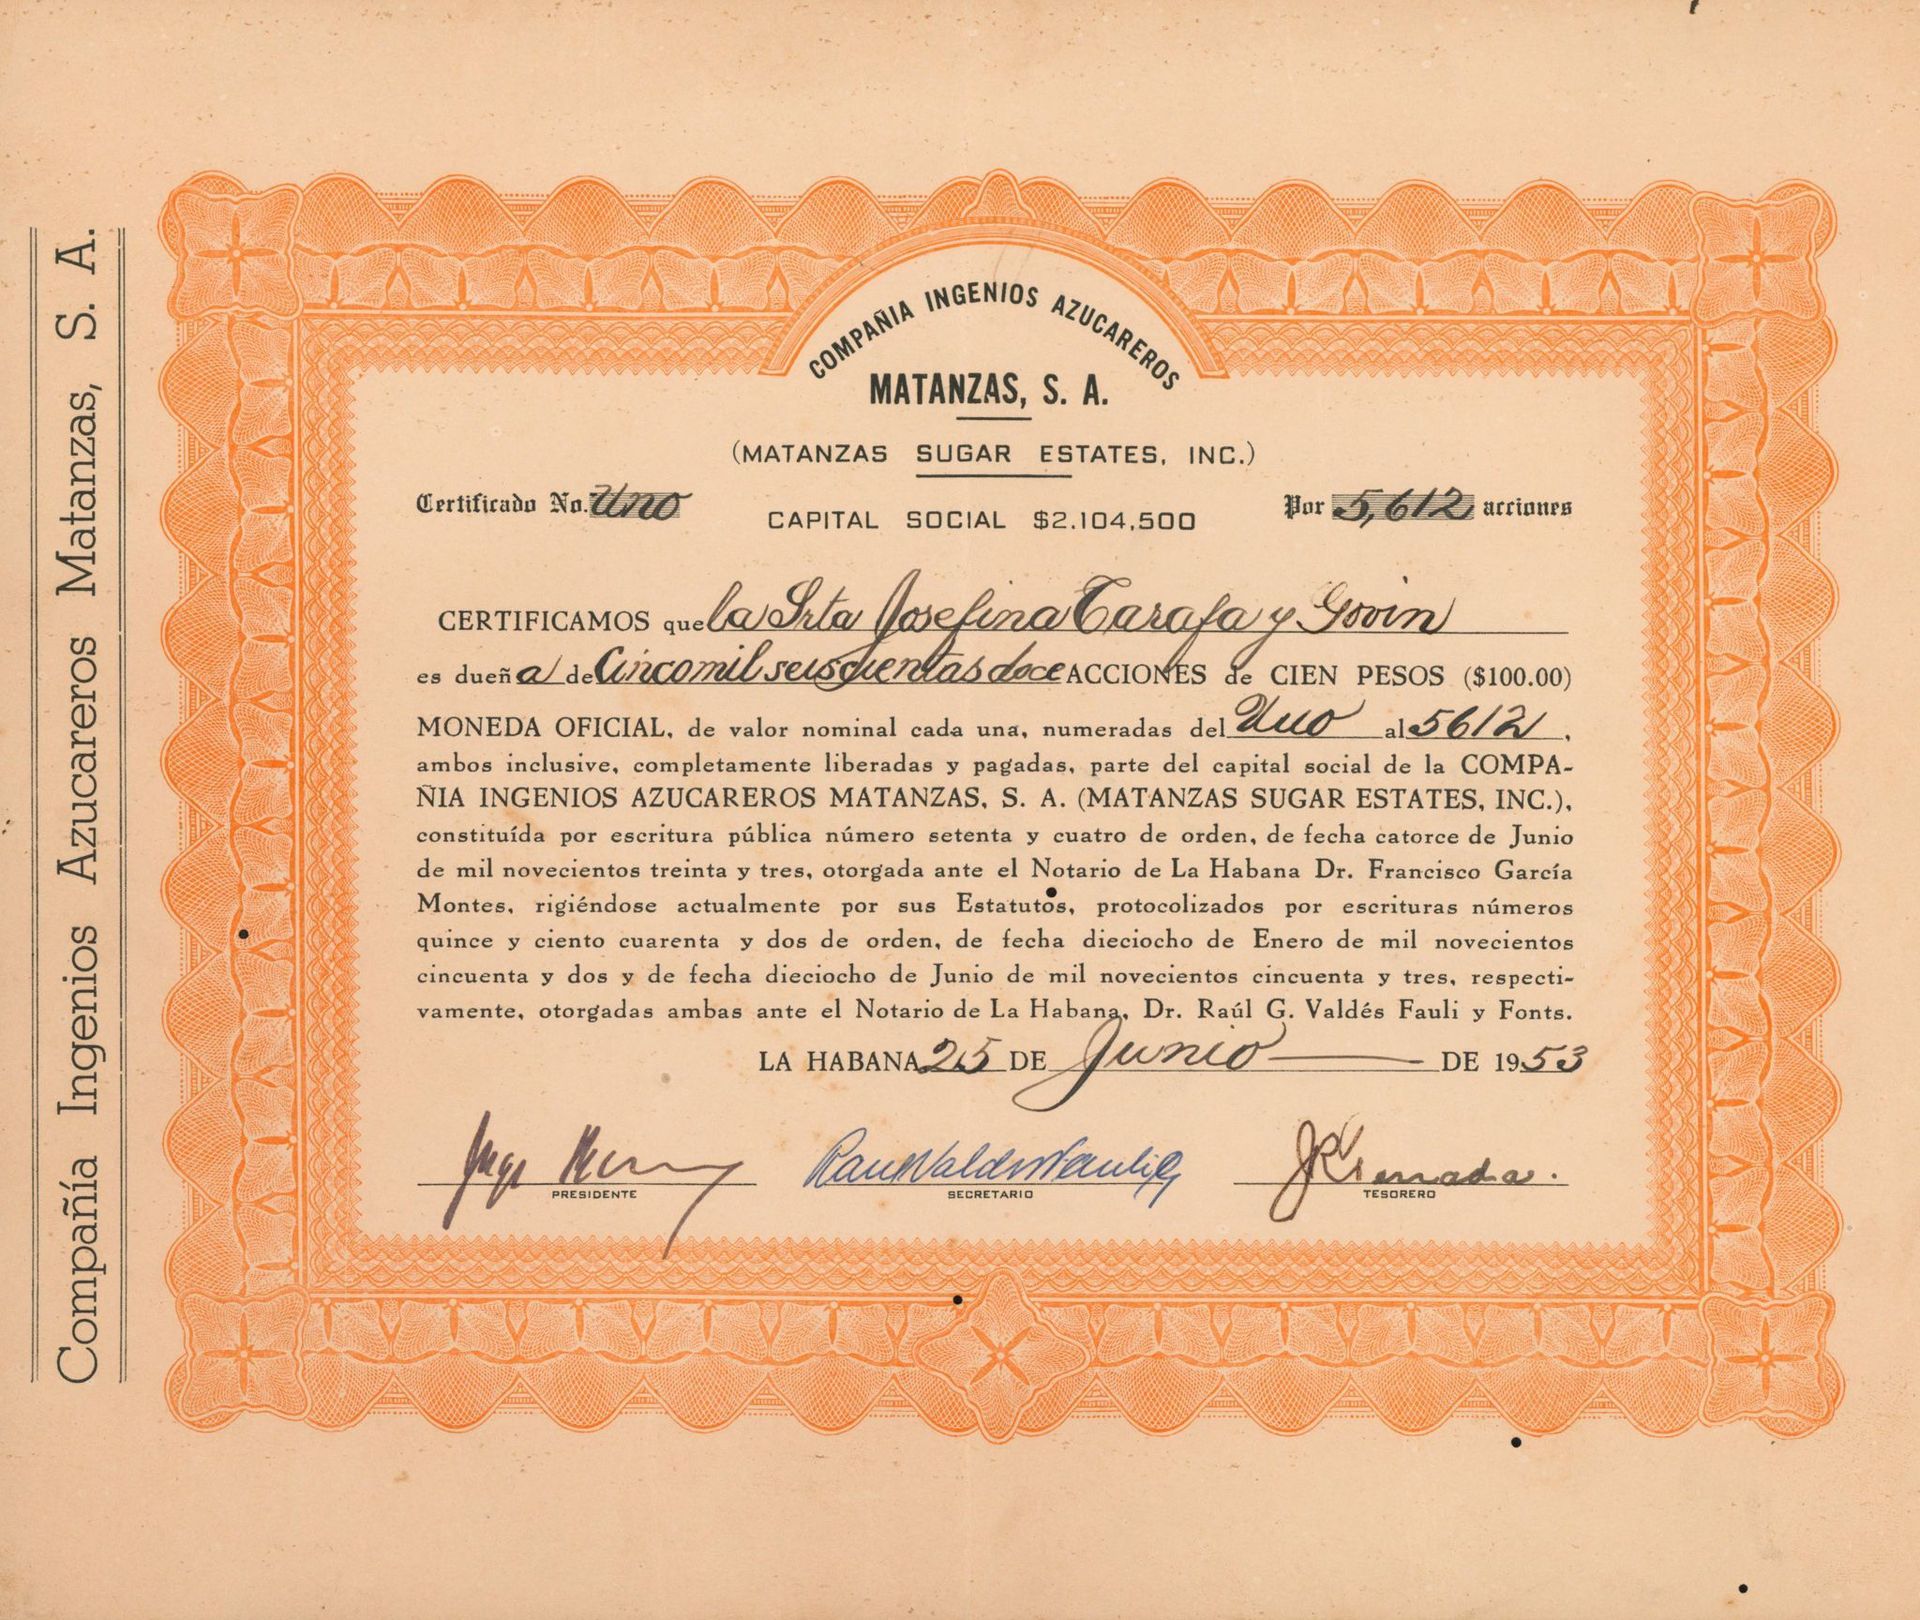 Compañía Ingenios Azucareros Matanzas, S. A.
COMPAÑIA INGENIOS AZUCAREROS
MATANZAS, S. A.
(MATANZAS SUGAR ESTATES, INC.)
Certificado No. Uno
CAPITAL SOCIAL $2.104,500
Por 5,612 acciones
CERTIFICAMOS que la Srta Josefina Tarafa y Govin
es dueña de Cincomil seiscientas doce ACCIONES de CIEN PESOS ($100.00)
MONEDA OFICIAL, de valor nominal cada una, numeradas del Uno al 5612,
ambos inclusive, completamente liberadas y pagadas, parte del capital social de la COMPA-
ÑIA INGENIOS AZUCAREROS MATANZAS, S. A. (MATANZAS SUGAR ESTATES, INC.),
constituída por escritura pública número setenta y cuatro de orden, de fecha catorce de Junio
de mil novecientos treinta y tres, otorgada ante el Notario de La Habana Dr. Francisco García
Montes, rigiéndose actualmente por sus Estatutos, protocolizados por escrituras números
quince y ciento cuarenta y dos de orden, de fecha dieciocho de Enero de mil novecientos
cincuenta y dos y de fecha dieciocho de Junio de mil novecientos cincuenta y tres, respecti-
vamente, otorgadas ambas ante el Notario de La Habana, Dr. Raúl G. Valdés Fauli y Fonts.
LA HABANA 25 DE Junio DE 1953
PRESIDENTE
SECRETARIO
TESORERO